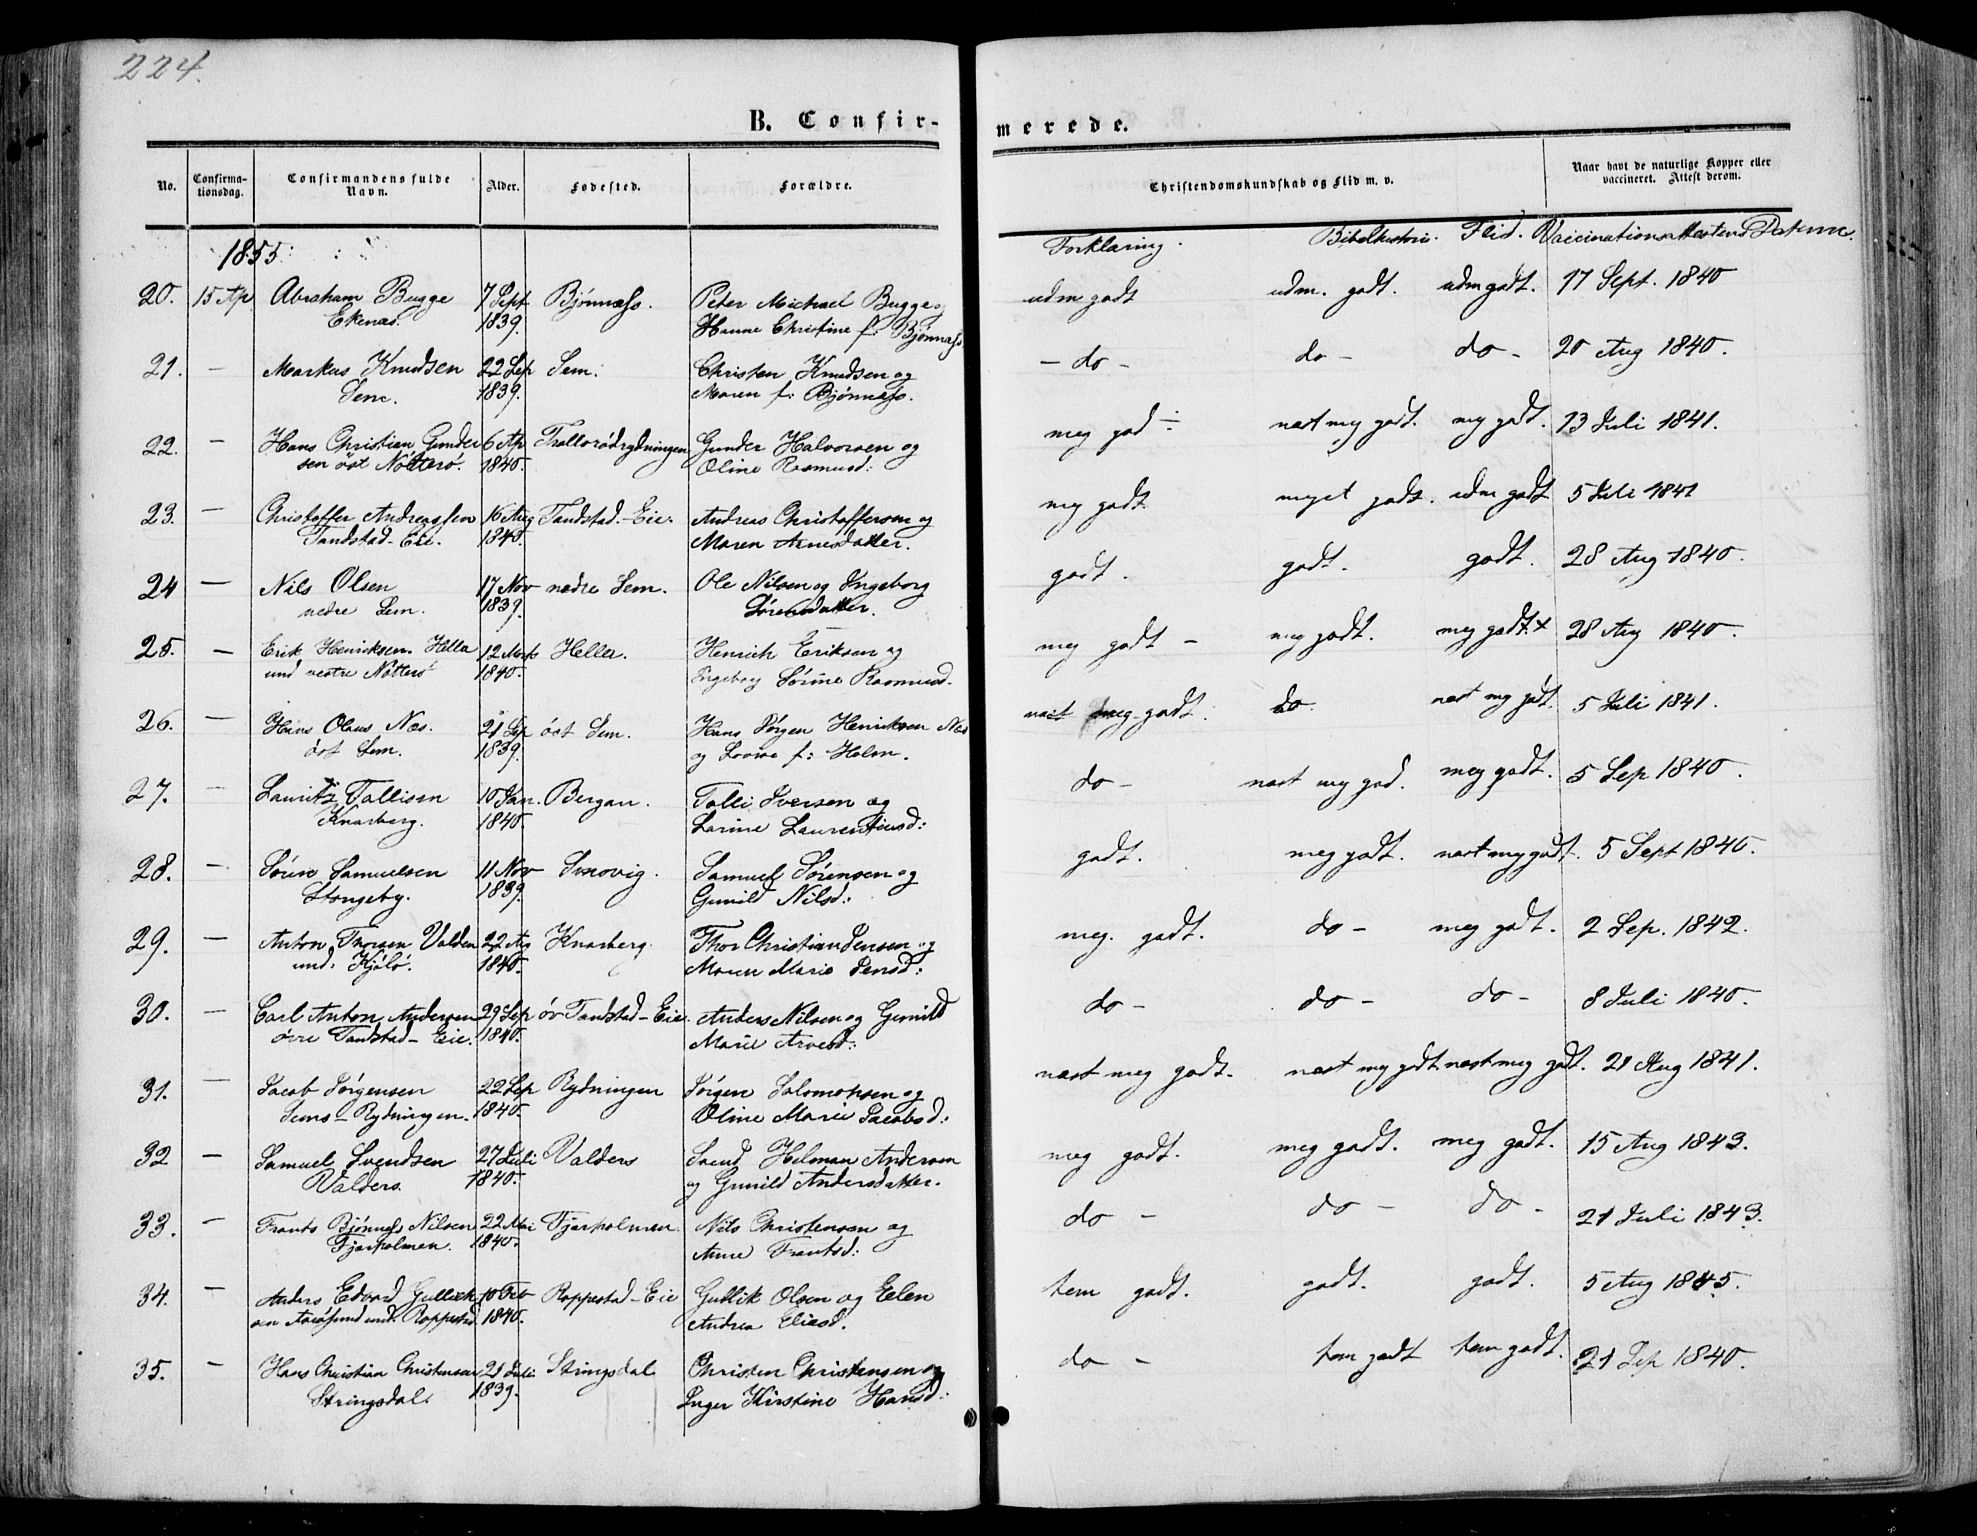 224.
B. Confir-
merede.
No.
Confirma-
tionsdag.
Confirmandens fulde
Navn.
Alder.
Fødested.
Forældre.
Christendomskundskab og Flid m. v.
Naar havt de naturlige Kopper eller
vaccineret. Attest derom.
1855.
Forklaring. Bibelhistorie. Flid. Vaccinationsattestens Datum.
20. 15 Ap Abraham Bugge 7 Sept Bjønnæss. Peter Michael Bugge og udm godt udm. godt. udm godt. 17 Sept. 1840
Ekenæs. 1839. Hanne Christine f: Bjønnæss
21. - Markus Knudsen 22 Sep Sem. Christen Knudsen og - do - do - do - 20 Aug 1840.
Sem. 1839. Maren f: Bjønnæss.
22. - Hans Christian Gunder 6 Ap Trollerødrydningen Gunder Halvorsen og meg god÷ næst my godt. my godt. 13 Juli 1841.
sen øst Nötterö. 1840. Oline Rasmusd:
23. - Christoffer Andreassen 16 Aug Tandstad-Eie. Andreas Christoffersen og my godt meget godt. udm godt 5 Juli 1841
Tandstad-Eie. 1840. Maren Arnesdatter.
24 - Nils Olsen 17 Nov nedre Sem. Ole Nilsen og Ingeborg godt. godt. godt. 28 Aug 1840.
nedre Sem. 1839. Sörensdatter.
25. - Erik Henriksen Hella 12 Marts Hella. Henrich Eriksen og meg godt - meg godt. meg godt.+ 28 Aug 1840.
und vestre Nötterö 1840. Ingeborg Sörine Rasmusd.
26. - Hans Olaus Næs. 21 Sep öst Sem. Hans Jörgen Henriksen Næs næst meg godt. do. næst my godt. 5 Juli 1841.
öst Sem. 1839. og Lovise f: Holm.
27. - Lauritz Tollisen 10 Jan. Bergan. Tolli Iversen og do - næst my god. meg godt. 5 Sep 1840.
Knarberg. 1840. Larine Laurentiusd:
28. - Sören Samuelsen 11 Nov Samuel Sörensen og godt. meg godt. næst my godt. 5 Sept 1840.
Stangeby. 1839. Gunild Nilsd:
29. - Anton Thorsen Valden 22 Aug Knarberg. Thor Christian Jensen og meg. godt. do - meg godt. 2 Sep. 1842.
und: Kjölö. 1840. Maren Marie Jensd:
30. - Carl Anton Andersen 29 Sep öv Tandstad-Eie. Anders Nilsen og Gunild do - do - do - 8 Juli 1840.
övre Tandstad-Eie. 1840. Marie Arvesd:
31. - Jacob Jörgensen 22 Sep Rydningen Jörgen Salomonsen og næst meg godt. næst my godt næst meg godt. 21 Aug 1841.
Sems-Rydningen. 1840. Oline Marie Jacobsd:
32 - Samuel Svendsen 27 Juli Valders Svend Helman Andersen meg godt. meg godt. meg godt. 15 Aug 1843.
Valders. 1840. og Gunild Andersdatter.
33. - Frants Bjönness Nilsen 22 Mai Fjærholmen. Nils Christensen og do - do - do - 21 Juli 1843.
Fjærholmen. 1840. Anne Frantsd:
34. - Anders Edvard Gulliks 10 Feb Roppestad-Eie Gullik Olsen og Eelen tem godt. godt. godt. 5 Aug 1845.
sen und: Roppestad 1840. Andrea Eliasd.
35. - Hans Christian Christensen 21 Juli Stringsdal Christen Christensen og do - tem godt tem godt. 21 Sep 1840.
Stringsdal. 1839. Inger Kirstine Hansd: